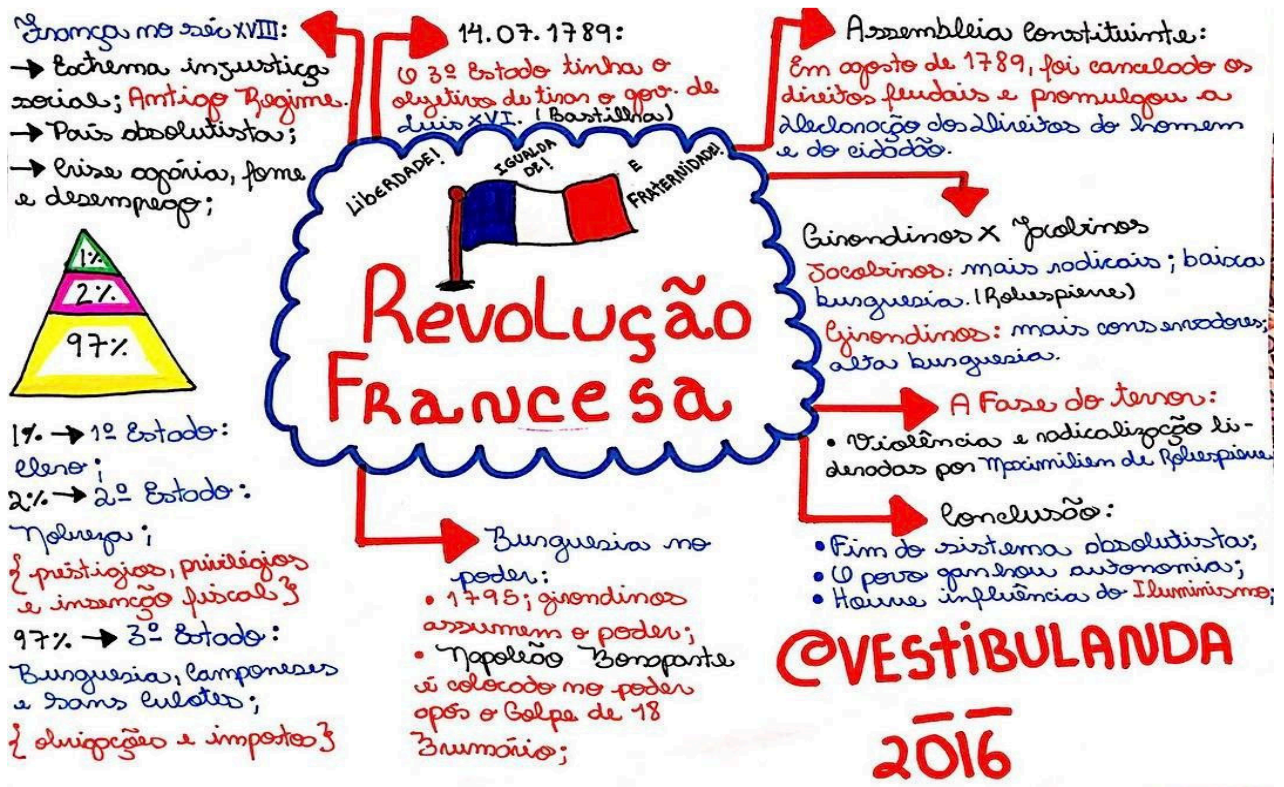 França no séc XVIII:
→ Extrema injustiça
social; Antigo Regime.
→ País absolutista;
→ Crise agária, fome
e desemprego;
1%
2%
97%
1% → 1º Estado:
clero;
2% → 2º Estado:
Nobreza;
{ prestígios, privilégios
e insenção fiscal }
97% → 3º Estado:
Burguesia, Camponeses
e sans culotes;
{ obrigações e impostos }
14.07.1789:
O 3º Estado tinha o
objetivo de tirar o gov. de
Luis XVI. (Bastilha)
LibERDADE!
IGUALDA
DE!
E
FRATERNIDADE!
Revolução
Francesa
Burguesia no
poder:
• 1795; girondinos
assumem o poder;
• Napoleão Bonaparte
é colocado no poder
após o Golpe de 18
Brumário;
Assembléia Constituinte:
Em agosto de 1789, foi cancelado os
direitos feudais e promulgou a
Declaração dos Direitos do homem
e do cidadão.
Girondinos X Jacobinos
Jacobinos: mais radicais; baixa
burguesia. (Robespierre)
Girondinos: mais conservadores;
alta burguesia.
A Fase do terror:
• Violência e radicalização li-
deradas por Maximilien de Robespierre
Conclusão:
• Fim do sistema absolutista;
• O povo ganhou autonomia;
• Houve influência do Iluminismo;
@VESTIBULANDA
2016